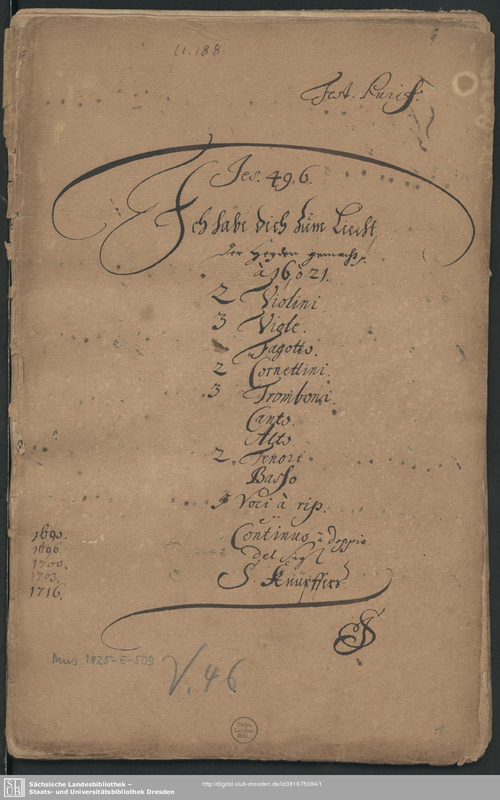 U.188
Fest. Purif.
Jes. 49. 6.
Ich habe dich zum Liecht
der Heyden gemacht
à 16, ò 21.
2 Violini
3 Viole.
Fagotto.
2 Cornettini.
3 Tromboni.
Canto.
Alto.
2. Tenori
Basso
5 Voci à rip.
Continuo à doppio
del Sigr
S. Knüpffers
1690.
1696.
1700.
1703.
1716.
Mus 1825-E-509
V. 46
1
SLUB
Sächsische Landesbibliothek –
Staats- und Universitätsbibliothek Dresden
http://digital.slub-dresden.de/id381675084/1